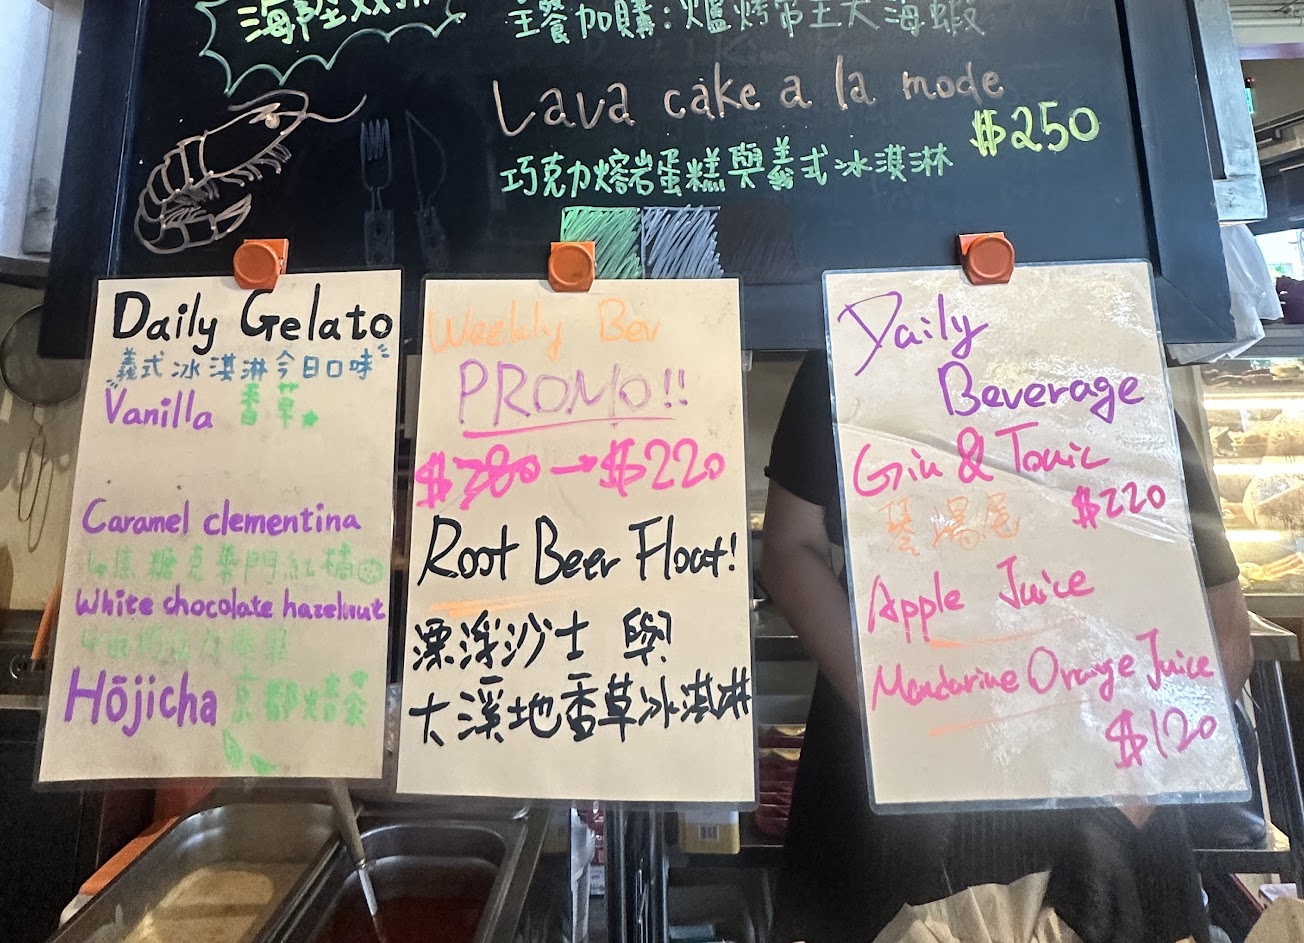 海陸雙拼
主餐加購:爐烤帝王大海蝦
Lava cake a la mode
$250
巧克力熔岩蛋糕與義式冰淇淋
Daily Gelato
義式冰淇淋今日口味
Vanilla 香草
Caramel clementina
焦糖克萊門紅橘
White chocolate hazelnut
Hōjicha 京都焙茶
Weekly Bev
PROMO!!
$280→$220
Root Beer Float!
漂浮沙士 與
大溪地香草冰淇淋
Daily
Beverage
Gin & Tonic
琴湯尼 $220
Apple Juice
Mandarine Orange Juice
$120